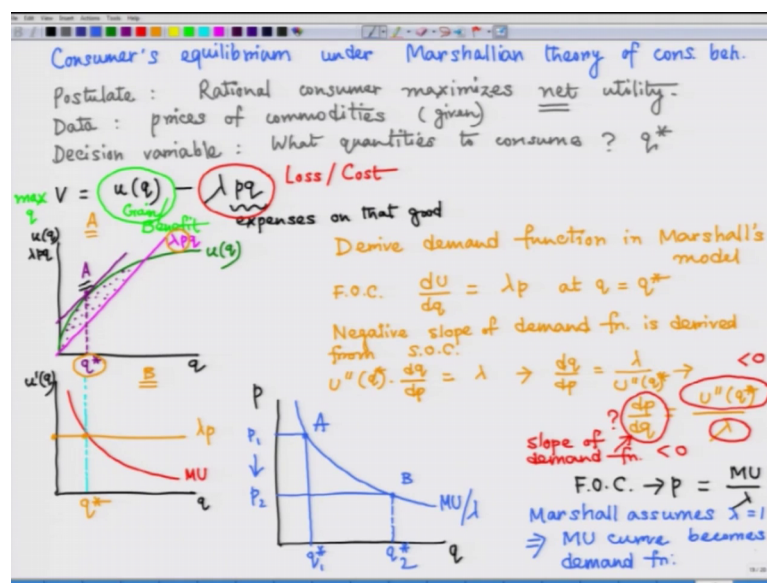 File Edit View Insert Actions Tools Help
Consumer's equilibrium under Marshallian theory of cons. beh.
Postulate : Rational consumer maximizes net utility.
Data : prices of commodities (given)
Decision variable : What quantities to consume ? q*
max q V = u(q) - λ pq Loss/Cost
Gain/Benefit
expenses on that good
A
u(q)
λpq
λpq
u(q)
A
q*
q
Derive demand function in Marshall's model
F.O.C. dU/dq = λp at q = q*
Negative slope of demand fn. is derived
from S.O.C.
U''(q)* · dq/dp = λ → dq/dp = λ/U''(q)* → ? dp/dq = U''(q*)/λ <0
slope of demand fn. <0
B
u'(q)
λp
MU
q*
q
P
P1
↓
P2
A
B
MU/λ
q1*
q2*
q
F.O.C. → p = MU/λ
Marshall assumes λ=1
⇒ MU curve becomes
demand fn.